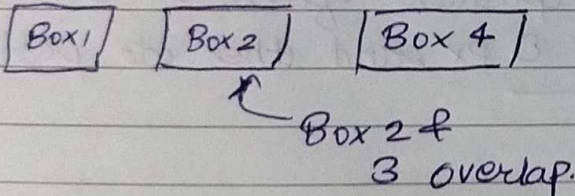 Box 1 Box 2 Box 4
Box 2 &
3 overlap.